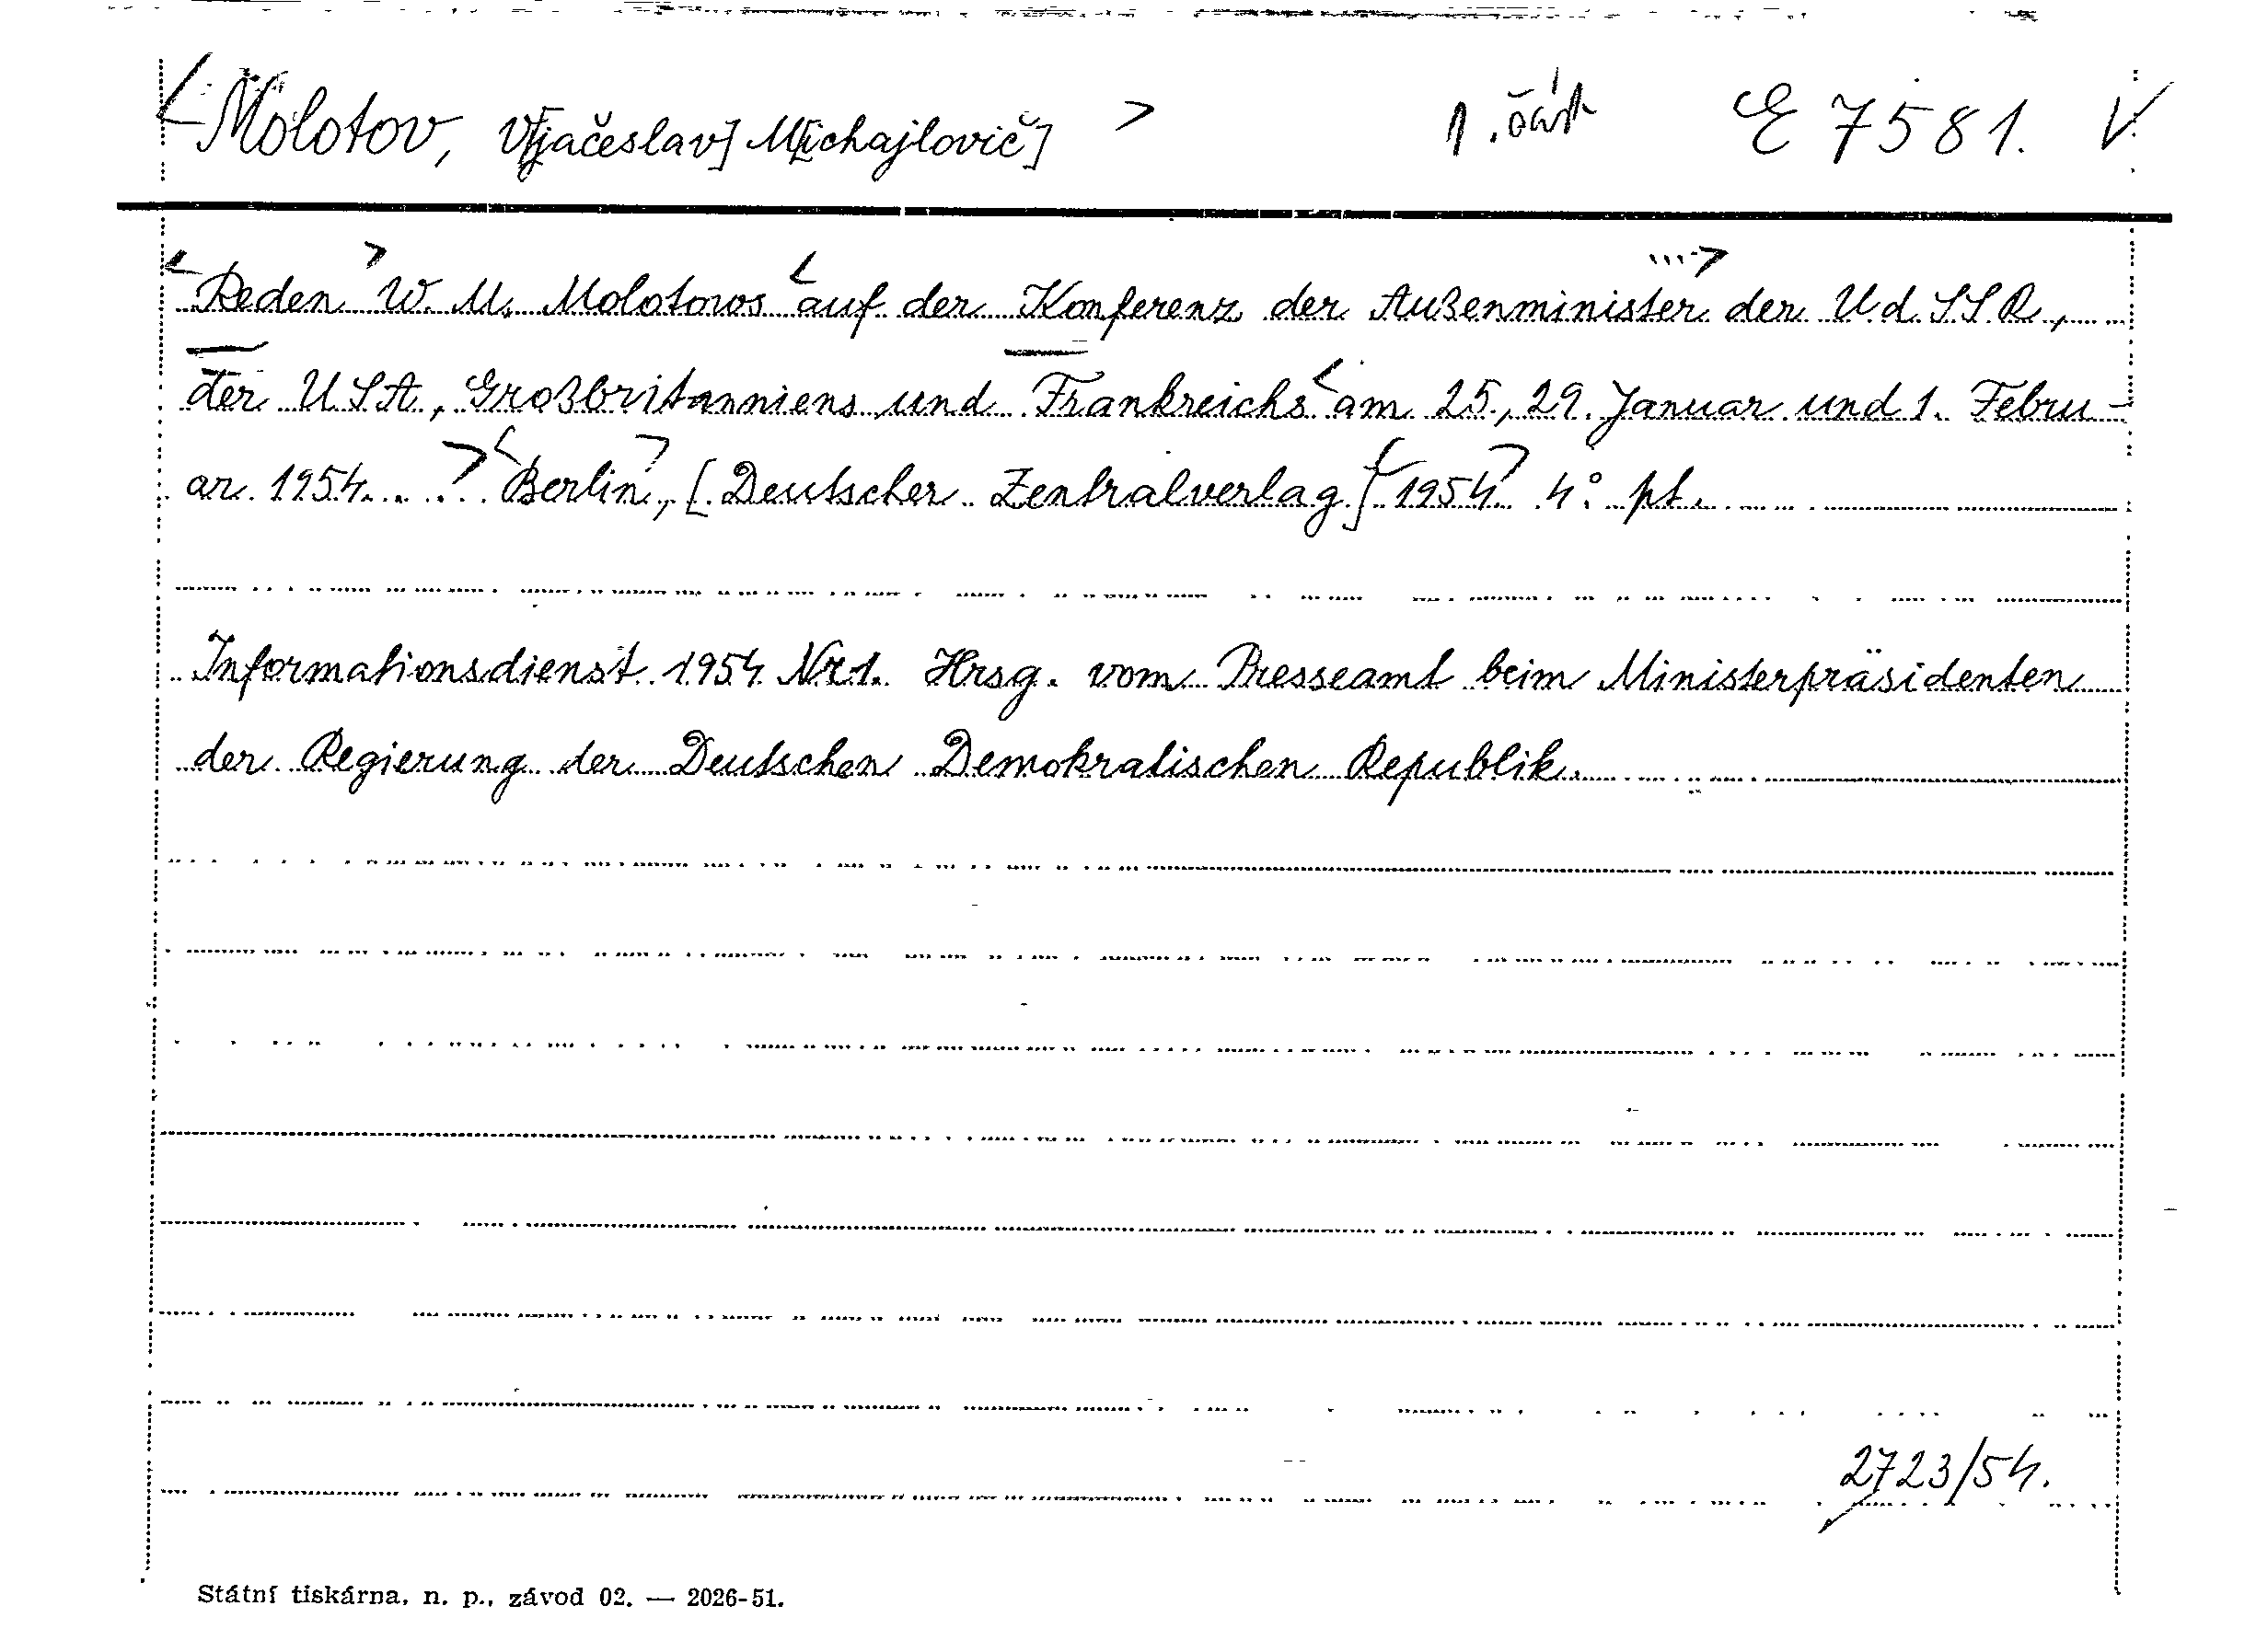 <Molotov, V[jačeslav] M[ichajlovič]> 1. část E 7581. V
<Reden> W. M. Molotows <auf der Konferenz der Außenminister ...> der UdSSR,
der USA, Großbritanniens und Frankreichs <am 25., 29. Januar und 1. Febru-
ar 1954...> <Berlin>, [Deutscher Zentralverlag] <1954> 4° pt.
Informationsdienst 1954 Nr 1. Hrsg. vom Presseamt beim Ministerpräsidenten
der Regierung der Deutschen Demokratischen Republik.
2723/54.
Státní tiskárna, n. p., závod 02. — 2026-51.